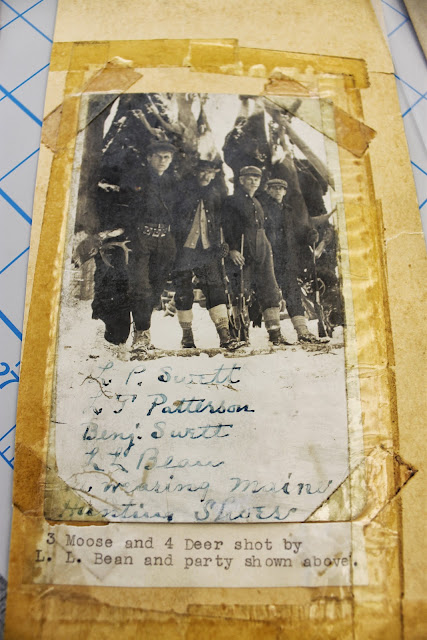 L. P. Swett
Patterson
Benj. Swett
L L Bean
wearing Maine
Hunting Shoes
3 Moose and 4 Deer shot by
L. L. Bean and party shown above.